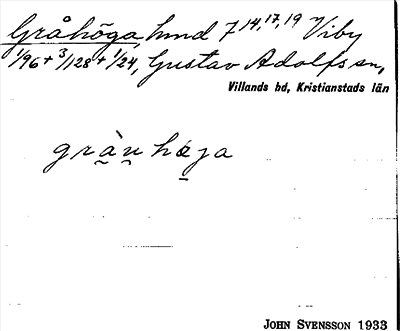 Gråhöga, hmd 7 14, 17, 19 Viby
1/96 + 3/128 + 1/24, Gustav Adolfs sn,
Villands hd, Kristianstads län
grà̰ṵ hø̱ja
JOHN SVENSSON 1933